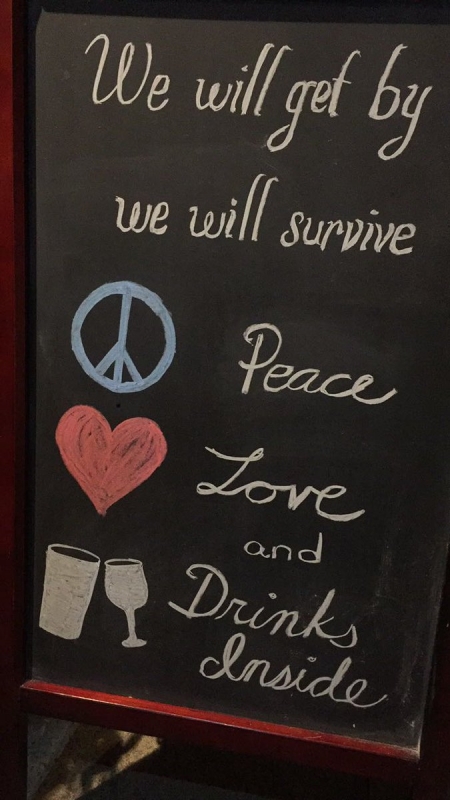 We will get by
we will survive
Peace
Love
and
Drinks
Inside